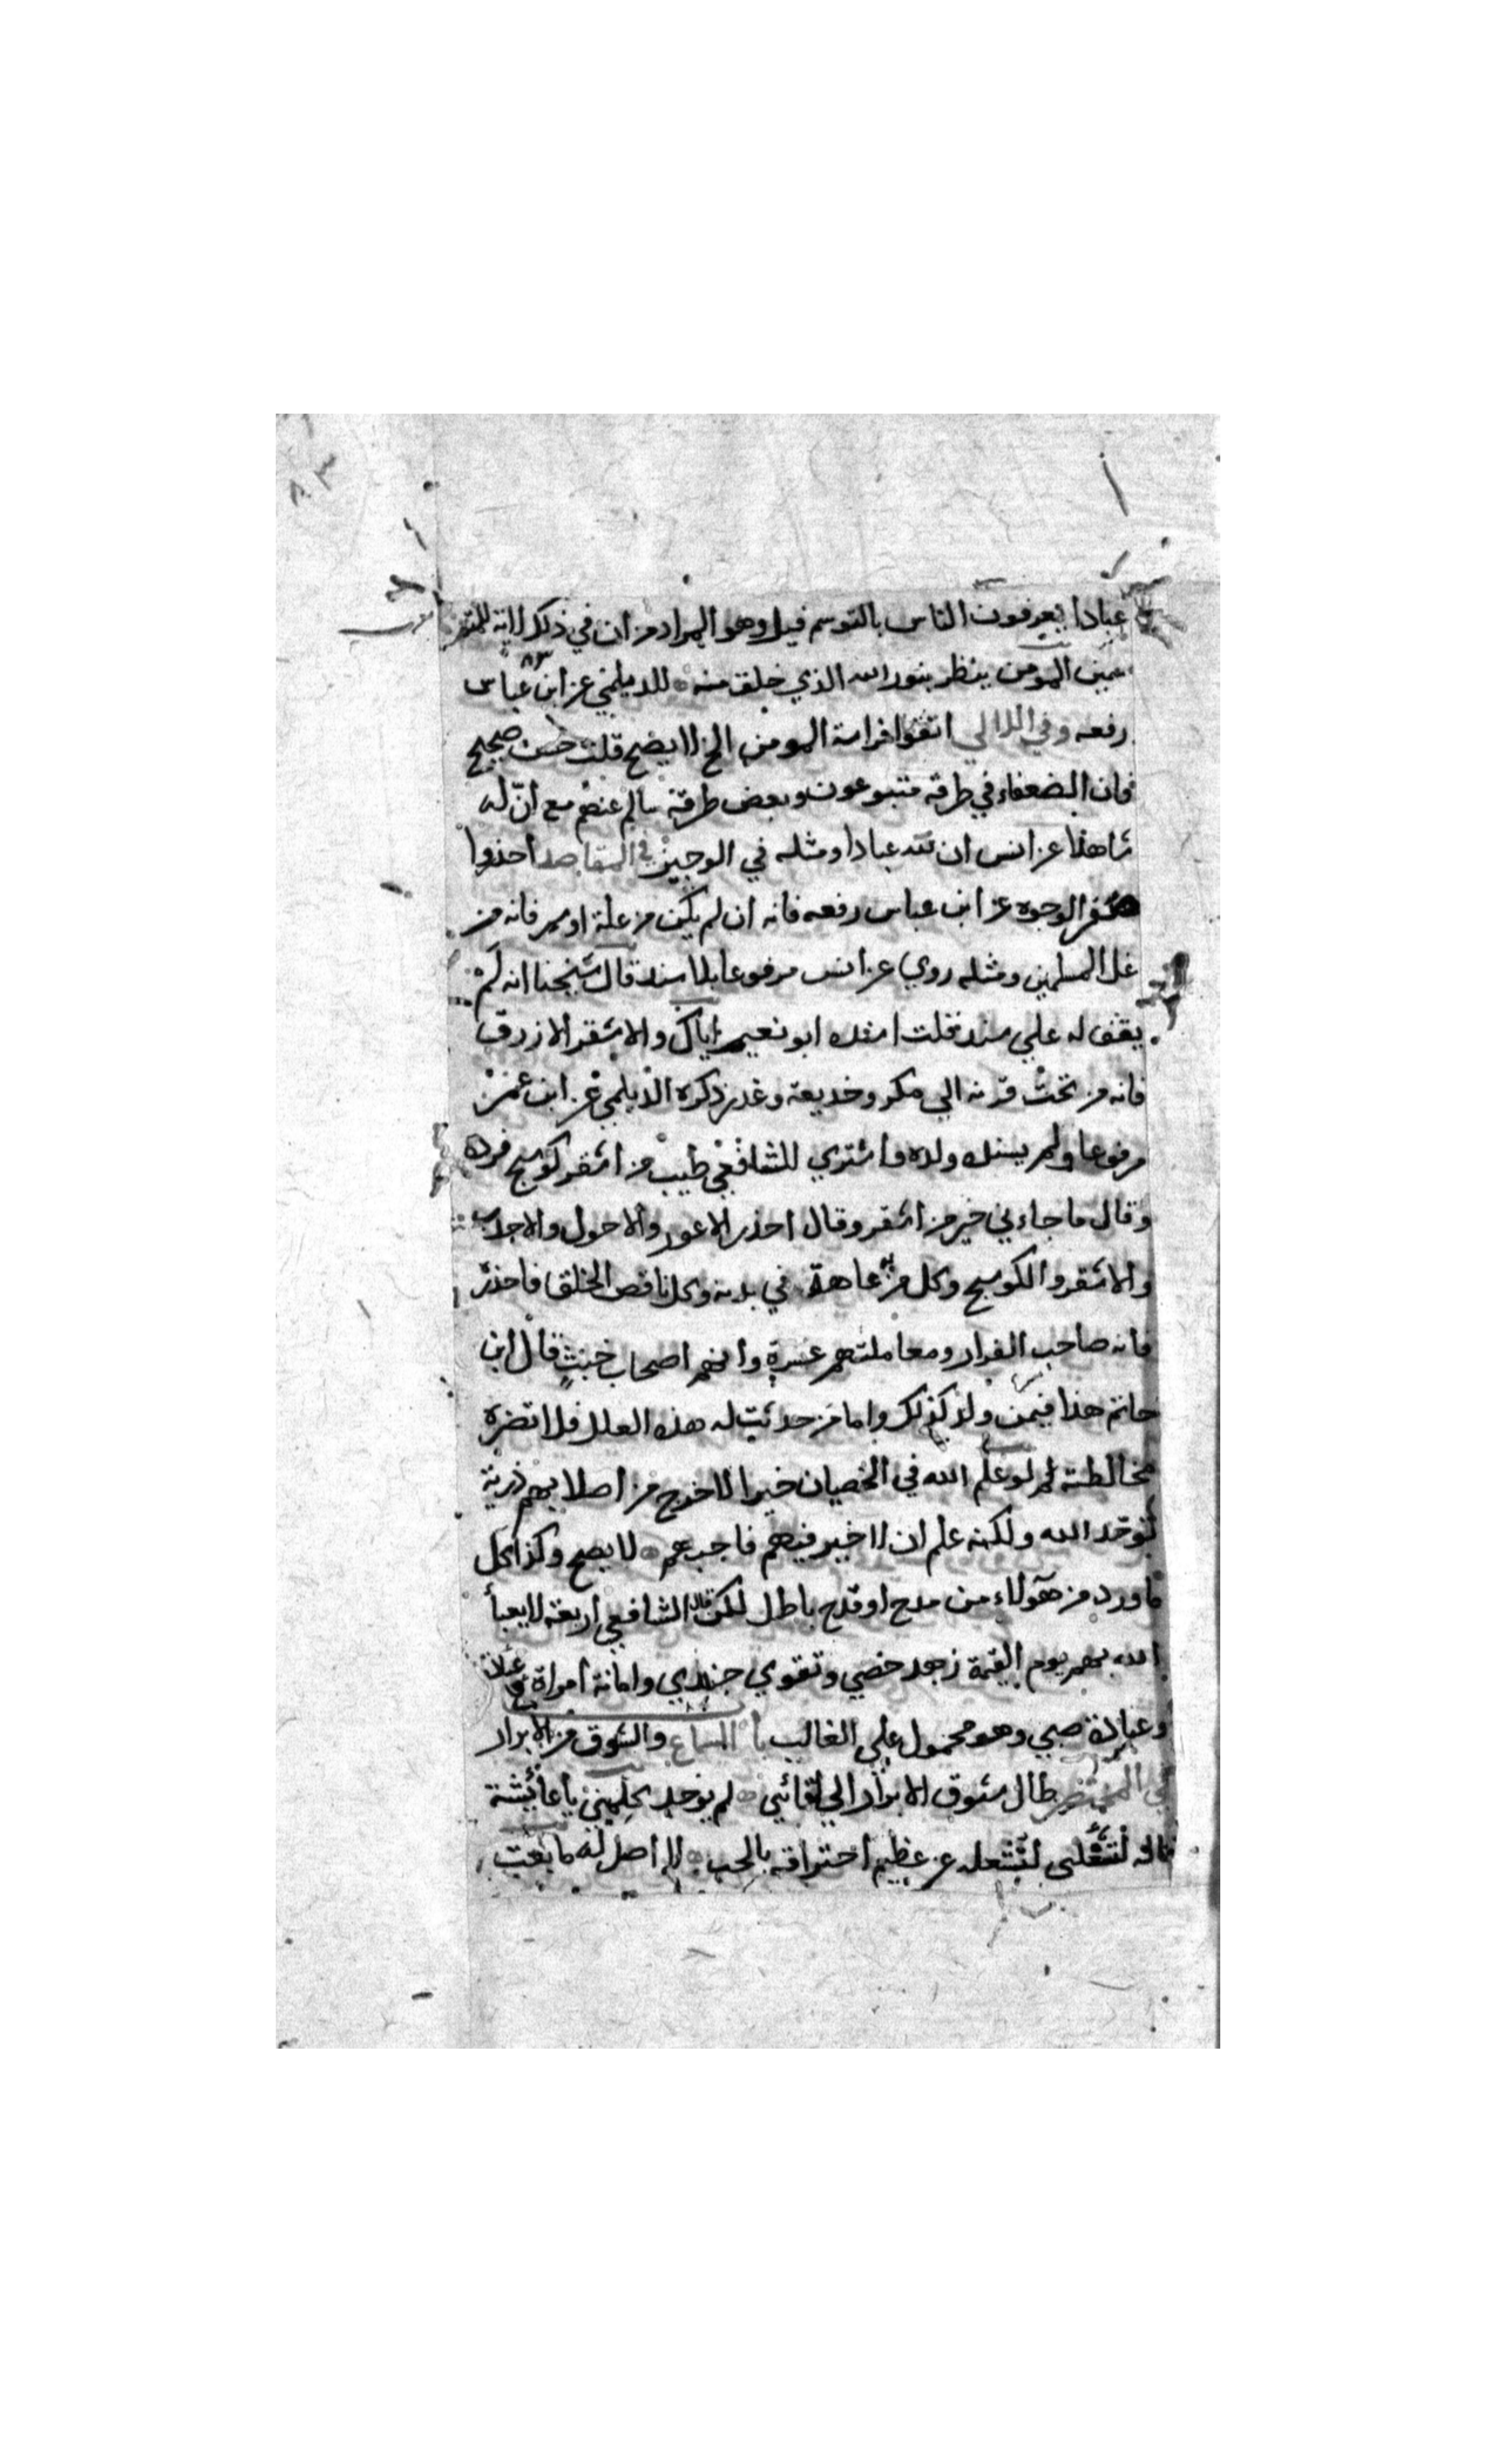 عبادا يعرفون الناس بالتوسم قيل وهو المراد من ان في ذلك لاية للمتو
سمين المومن ينظر بنور الله الذي خلق منه للديلمي عن ابن عباس
رفعه وفي اللالي اتقوا فراسة المومن الخ لا يصح قلت حسن صحيح
فان الضعفاء في طرقه متبوعون وبعض طرقه سالم عنهم مع انّ له
شاهدا عن انس ان لله عبادا ومثله في الوجيز في المقاصد احذروا
صفر الوجوه عن ابن عباس رفعه فانه ان لم يكن من علة او سهر فانه من
غل المسلمين ومثله روي عن انس مرفوعا بلا سند قال شيخنا انه لم
يقف له علي سند قلت اسنده ابو نعيم اياك والاشقر الازرق
فانه من تحت قرنه الي مكر وخديعة وغدر ذكره الديلمي عن ابن عمر
مرفوعا ولم يسنده ولده واشتري للشافعي طيب من اشقر كوسج فرده
وقال ما جاءني خير من اشقر وقال احذر الاعور والاحول والاجدب
والاشقر والكوسج وكل من به عاهة في بدنه وكل ناقص الخلق فاحذر
فانه صاحب الفرار ومعاملتهم عسرة وانهم اصحاب خبث قال ابن
حاتم هذا فيمن ولد كذلك واما من حدثت له هذه العلل فلا تضره
مخالطته لم لو علم الله في الخصيان خيرا لاخرج من اصلابهم ذرية
توحد الله ولكنه علم ان لا خير فيهم فاجبهم لا يصح وكذا كل
ما ورد من هؤلاء من مدح او قدح باطل لكن قال الشافعي اربعة لا يعبأ
الله بهم يوم القيمة زهد خصي وتقوي جندي وامانة امراة
وعبادة صبي وهو محمول علي الغالب السماع والشوق من الابرار
في المختصر طال شوق الابرار الي لقائي لم يوجد كلميني يا عائشة
قاله لتشغله عن عظيم احتراقه بالحب لا اصل له ما بعت